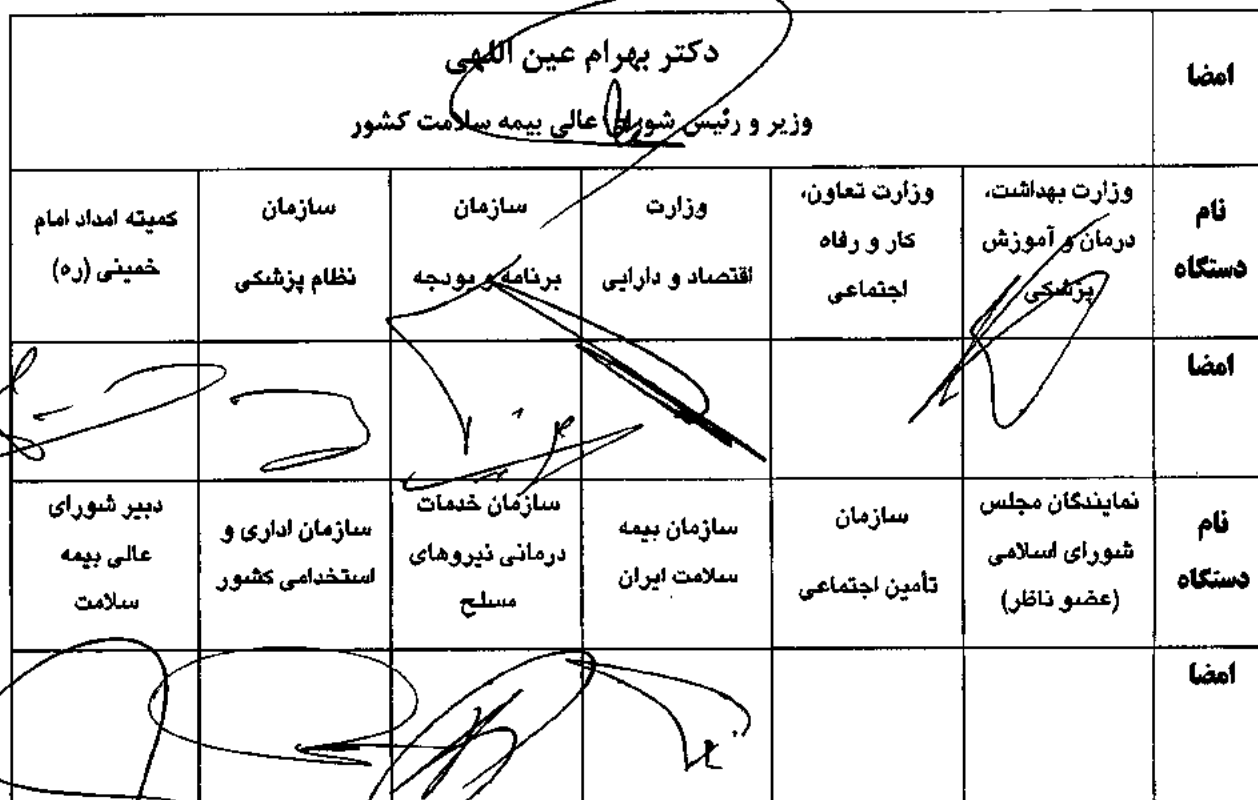 امضا
دکتر بهرام عین اللهی
وزیر و رئیس شورای عالی بیمه سلامت کشور
نام
دستگاه
وزارت بهداشت،
درمان و آموزش
پزشکی
وزارت تعاون،
کار و رفاه
اجتماعی
وزارت
اقتصاد و دارایی
سازمان
برنامه و بودجه
سازمان
نظام پزشکی
کمیته امداد امام
خمینی (ره)
امضا
نام
دستگاه
نمایندگان مجلس
شورای اسلامی
(عضو ناظر)
سازمان
تأمین اجتماعی
سازمان بیمه
سلامت ایران
سازمان خدمات
درمانی نیروهای
مسلح
سازمان اداری و
استخدامی کشور
دبیر شورای
عالی بیمه
سلامت
امضا